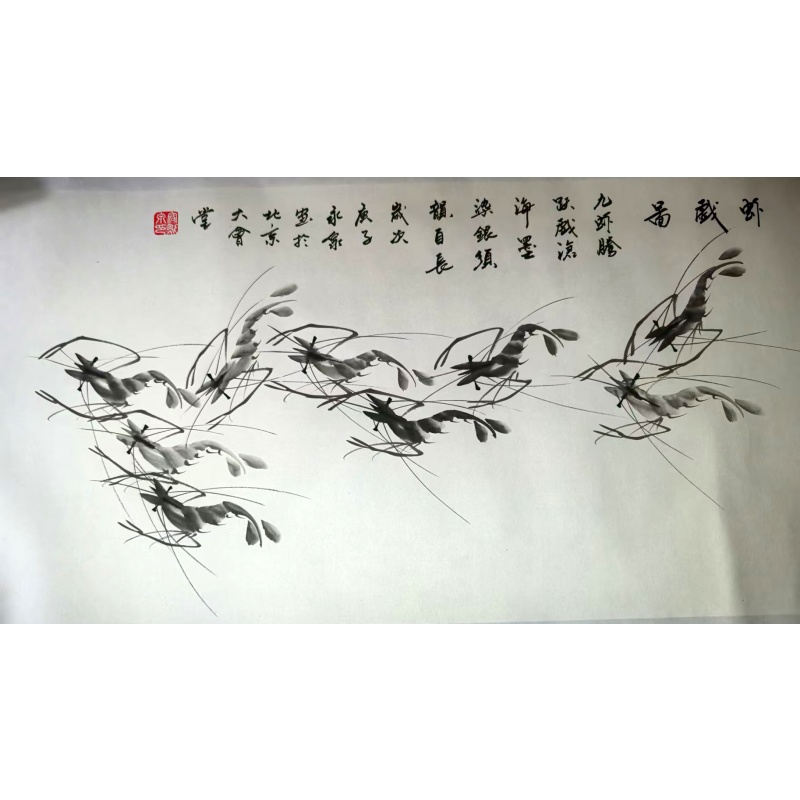 虾戲圖
九虾騰
跃戲滄
海墨
染銀須
韻自長
歲次
庚子
永泉
畫於
北京
大會
堂